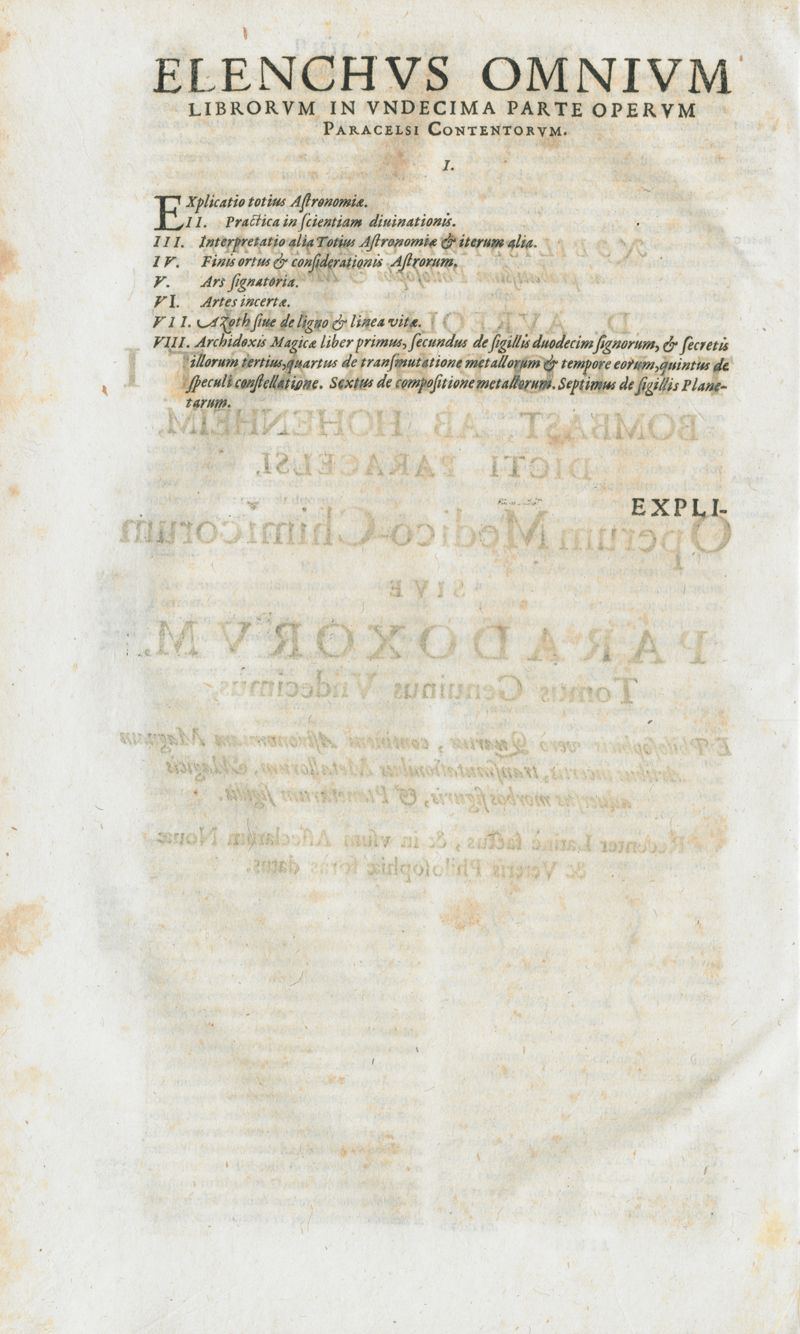 ELENCHVS OMNIVM
LIBRORVM IN VNDECIMA PARTE OPERVM
PARACELSI CONTENTORVM.
I.
EXplicatio totius Aſtronomiæ.
II. Practica in ſcientiam diuinationis.
III. Interpretatio alia Totius Aſtronomiæ & iterum alia.
IV. Finis ortus & conſiderationis Aſtrorum.
V. Ars ſignatoria.
VI. Artes incertæ.
VII. Azoth ſiue de ligno & linea vitæ.
VIII. Archidoxis Magicæ liber primus, ſecundus de ſigillis duodecim ſignorum, & ſecretis
illorum tertius, quartus de tranſmutatione metallorum & tempore eorum, quintus de
ſpeculi conſtellatione. Sextus de compoſitione metallorum. Septimus de ſigillis Plane-
tarum.
EXPLI-